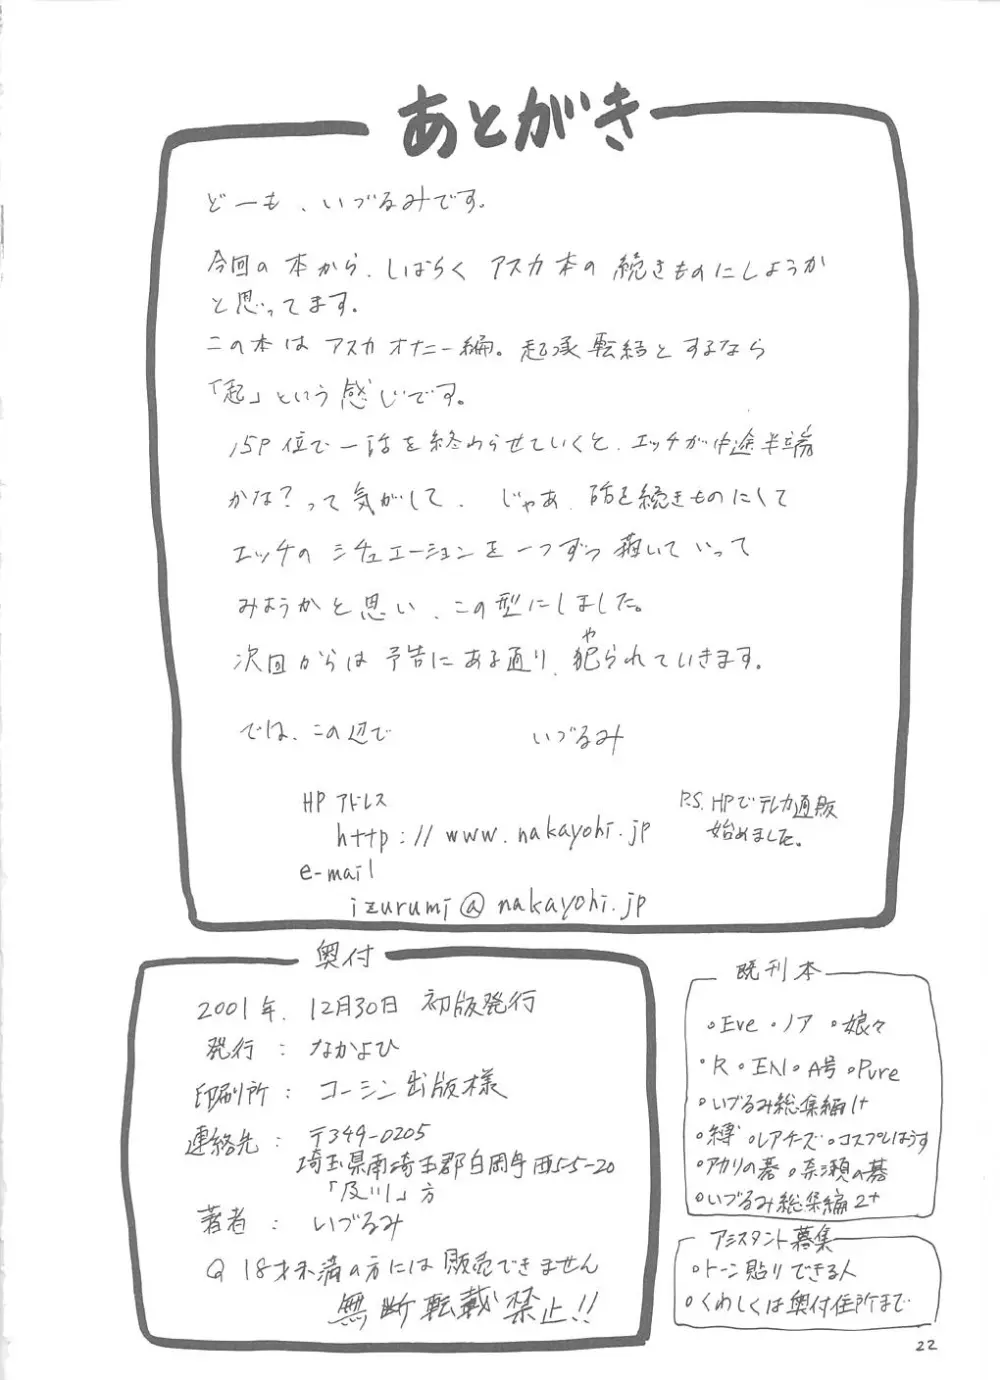 あとがき
どーも、いづるみです。
今回の本から、しばらく アスカ本の 続きものにしようか
と思ってます。
この本は アスカオナニー編。起承転結とするなら
「起」という感じです。
15P位で一話を終わらせていくと、エッチが中途半端
かな？って気がして、じゃあ、話を続きものにして
エッチの シチュエーションを一つずつ 描いていって
みようかと思い、この型にしました。
次回からは予告にある通り、犯られていきます。
や
では、この辺で いづるみ
HP アドレス
http://www.nakayohi.jp
e-mail
izurumi@nakayohi.jp
P.S. HPでテレカ通販
始めました。
奥付
2001年、12月30日 初版発行
発行 : なかよひ
印刷所 : コーシン出版様
連絡先 : 〒349-0205
埼玉県南埼玉郡白岡町西5-5-20
「及川」方
著者 : いづるみ
18才未満の方には販売できません
無断転載禁止!!
既刊本
。Eve 。ノア 。娘々
。R 。EN 。A号 。Pure
。いづるみ総集編1+
。縛 。レアチーズ 。コスプレはうす
。アカリの碁 。奈瀬の碁
。いづるみ総集編2+
アシスタント募集
。トーン貼りできる人
。くわしくは奥付住所まで
22